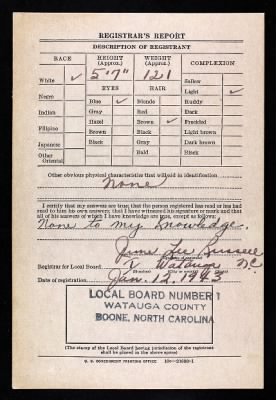 REGISTRAR'S REPORT
DESCRIPTION OF REGISTRANT
RACE HEIGHT (Approx.) WEIGHT (Approx.) COMPLEXION
White ✓ 5'7" 121 Sallow
EYES HAIR Light ✓
Negro Blue ✓ Blonde Ruddy
Indian Gray Red Dark
Hazel Brown ✓ Freckled
Filipino Brown Black Light brown
Japanese Black Gray Dark brown
Other Oriental Bald Black
Other obvious physical characteristics that will aid in identification
None
I certify that my answers are true; that the person registered has read or has had
read to him his own answers; that I have witnessed his signature or mark and that
all of his answers of which I have knowledge are true, except as follows:
None to my knowledge.
Lee
Registrar for Local Board 1 Watauga N.C.
(Number) (City or county) (State)
Date of registration Jan. 12, 1943
LOCAL BOARD NUMBER 1
WATAUGA COUNTY
BOONE, NORTH CAROLINA
(The stamp of the Local Board having jurisdiction of the registrant
shall be placed in the above space)
U. S. GOVERNMENT PRINTING OFFICE